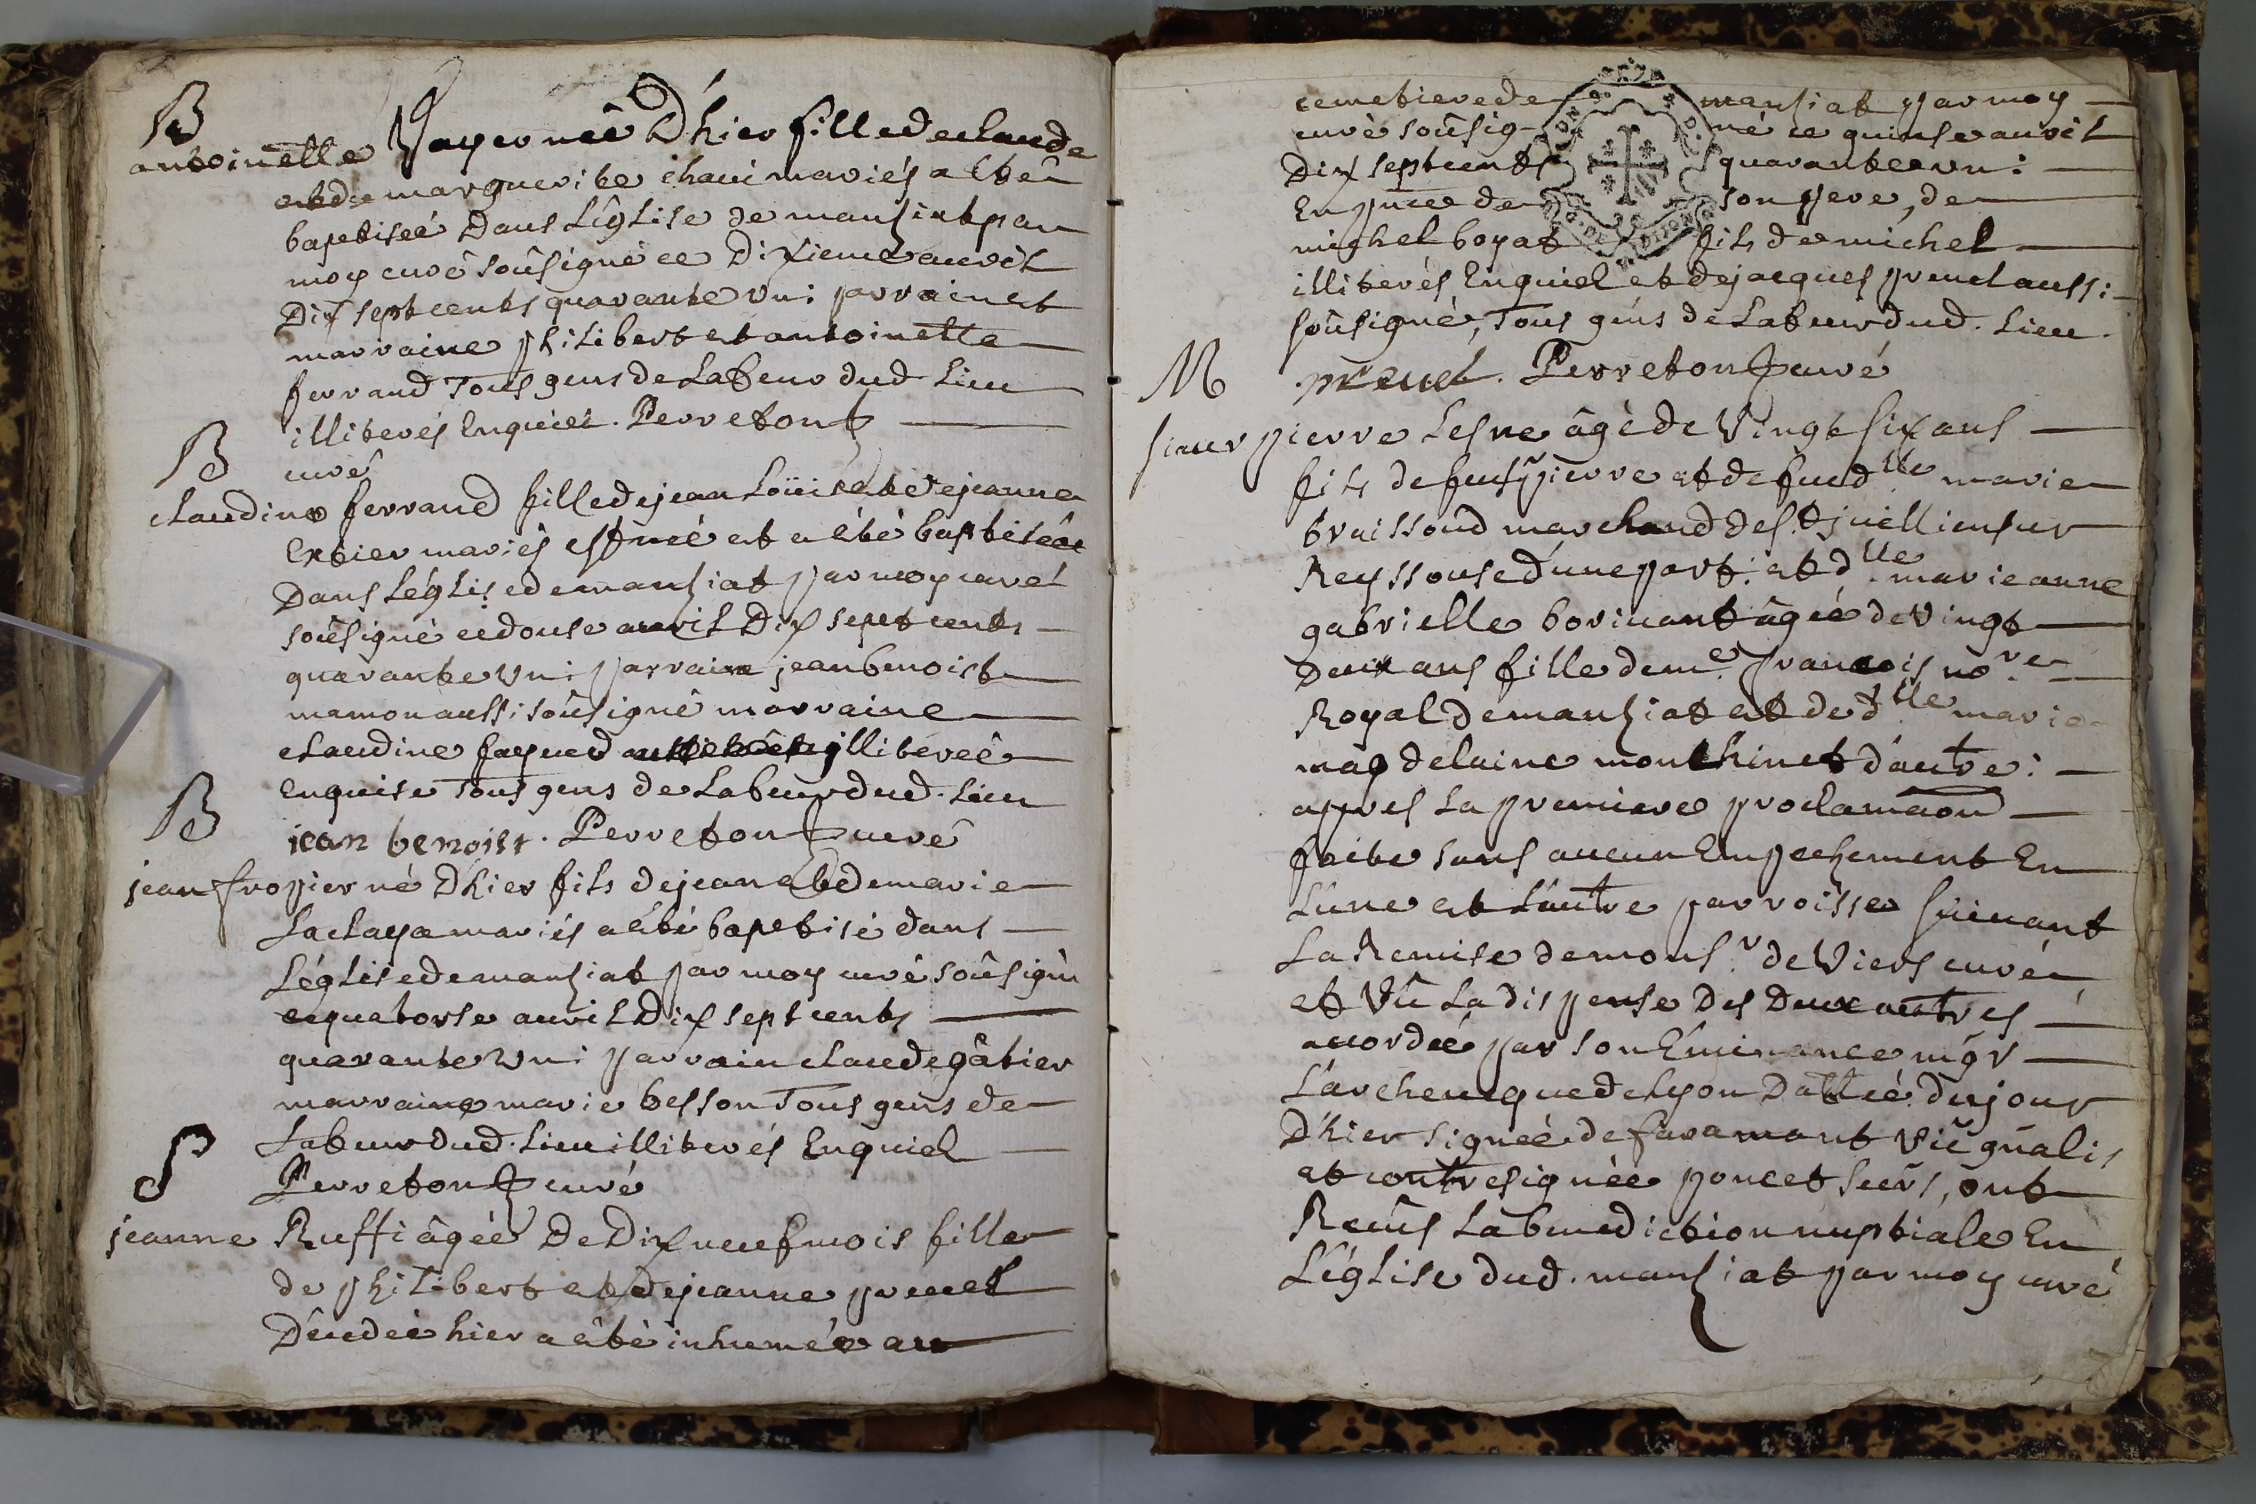 B
antoinette Payer neê D'hier fille de claude
et de marguerite chaui mariés a êté
baptiseé Dans L'êglise de mantziat par
moy curé soûsigné ce Dixieme auvril
Dix sept cents quarante un: parrain et
marraine philibert et antoinette
ferrand Tous gens de Labeur dud. Lieu
illiterés Enquiei. Perreton
curé
B
claudine ferrand fille de jean Loüis et de jeanne
Extier mariés est neé et a êté baptiseé
Dans L'église de mantziat par moy curé
soûsigné ce douse auvril Dix sept cents
quarante un: parrain jean benoist
mamon aussi soûsigné marraine
claudine illitereé
Enquise Tous gens de Labeur dud. Lieu
jean benoist. Perreton curé
B
jean fropier né D'hier fils de jean et de marie
Laclaya mariés a êté baptisé dans
L'église de mantziat par moy curé soûsigné
ce quatorse auvril Dix sept cents
quarante un: parrain claude gâtier
marraine marie besson Tous gens de
Labeur dud. Lieu illiterés Enquiei
Perreton curé
S
jeanne Ruffi âgeé De Dix neuf mois fille
de philibert et de jeanne preuel
Dêcedeé hier a êté inhumée au
cemetiere de mantziat par moy
curé soûsigné ce quinse auvril
Dix sept cents quarante un:
En pnce de son pere, de
michel boyat fils de michel
illiterés Enquiei et de jacques preuel aussi
soûsigné, Tous gens de Labeur dud. Lieu.
preuel. Perreton curé
M
sieur pierre Lesne âgé de Vingt six ans
fils de feu sr pierre et de feue dlle marie
braissoud marchand de St juillien sur
Reyssouse d'une part: et dlle marieanne
gabrielle boriuant âgeé de Vingt
Deux ans fille de me francois nore
Royal de mantziat et de dlle marie
magdelaine monchinet d'autre:
appres La premiere proclamaon
faite sans aucun Empechement En
L'une et L'autre parroisse suiuant
La Remise de monsr de Viers curé
et Vû La dispense Des Deux autres
accordeé par son Eminance mgr
L'archeueque de Lyon Datteé du jour
D'hier signeé de saramant Vic gnalis
et contresignée poncet secrs, ont
Recûs La benediction nuptiale En
L'église dud. mantziat par moy curé